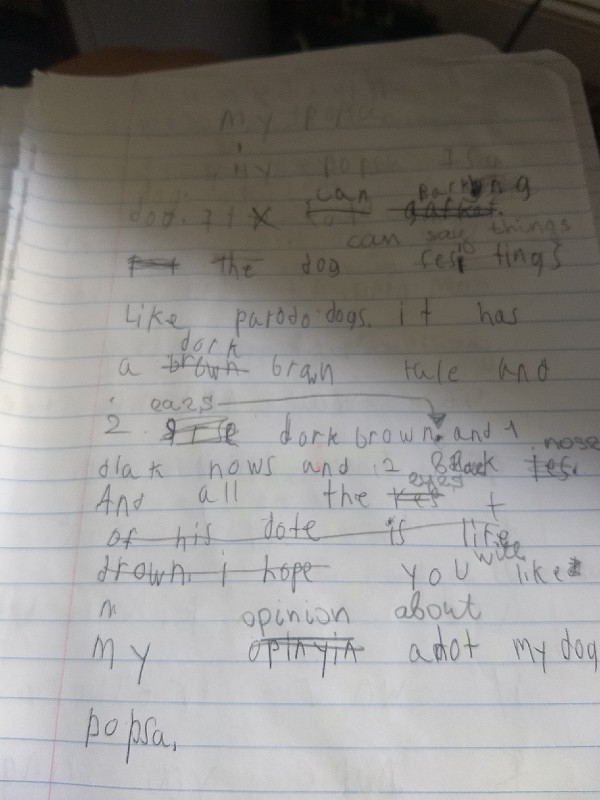 My popsa
My popsa I san
dod. It x can Barking
can say things
the dog tings
Like parodo dogs. it has
dork
a brown brawn tale and
ears
2 dork brown. and 1 nose
dlak nows and 2 Black
eyes
And all the t
of his dote is like
wite
drown. i hope you like
opinion about
My opinyin adot my dog
popsa.